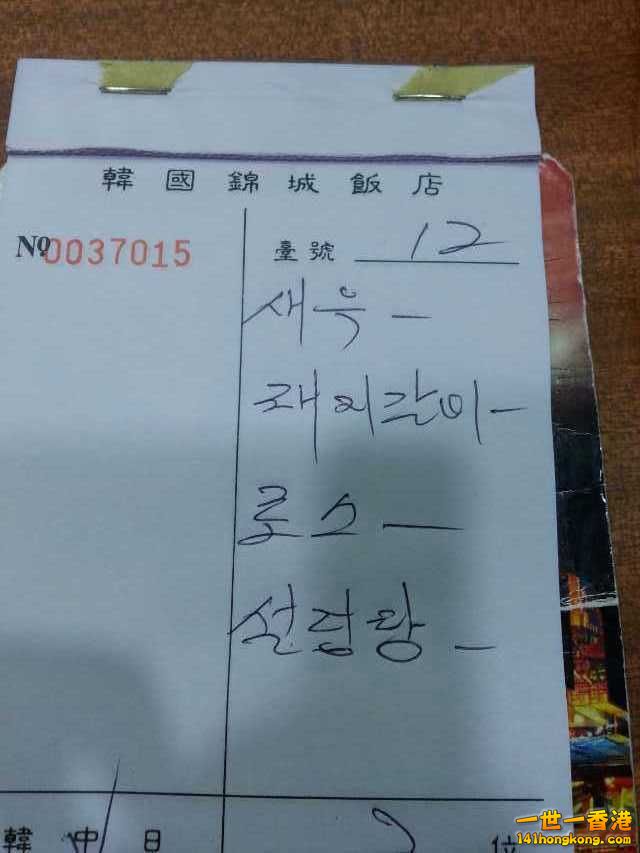 韓國錦城飯店
№ 0037015
臺號 12
새우 一
돼지갈비 一
로스 一
설렁탕 一
韓 中 日 2 位
一世一香港
141hongkong.com